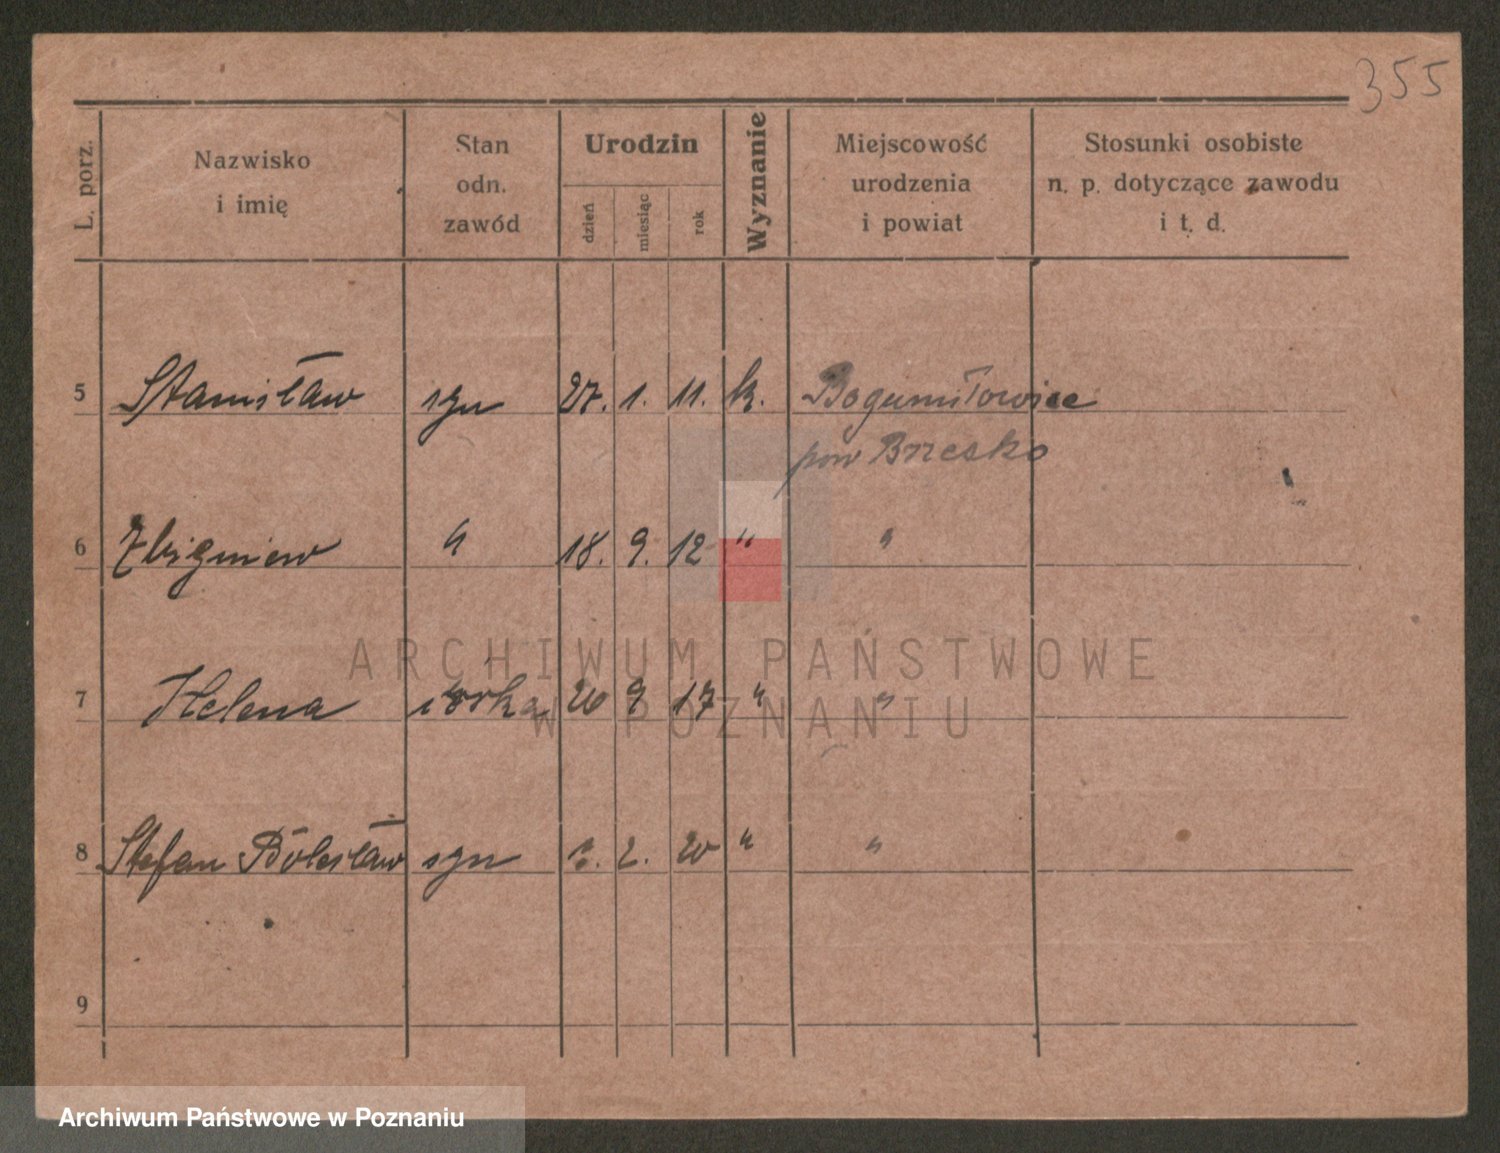 355
L. porz.
Nazwisko
i imię
Stan
odn.
zawód
Urodzin
dzień
miesiąc
rok
Wyznanie
Miejscowość
urodzenia
i powiat
Stosunki osobiste
n. p. dotyczące zawodu
i t. d.
5 Stanisław syn 27. 1. 11. k. Bogumiłowice
pow Brzesko
6 Zbigniew " 18. 9. 12 " "
ARCHIWUM PAŃSTWOWE
7 Helena córka 20 9 17 " "
W POZNANIU
8 Stefan Bolesław syn 2. 20 " "
9
Archiwum Państwowe w Poznaniu